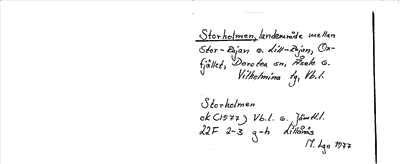 Storholmen, landområde mellan
Stor-Rajan o. Lill-Rajan, Ox-
fjället, Dorotea sn, Åsele o.
Vilhelmina tg, Vb.l.
Storholmen
ek (1977) Vb.l. o. Jämtl.l.
22F 2-3 g-h Lillånäs
M. Lgn 1977